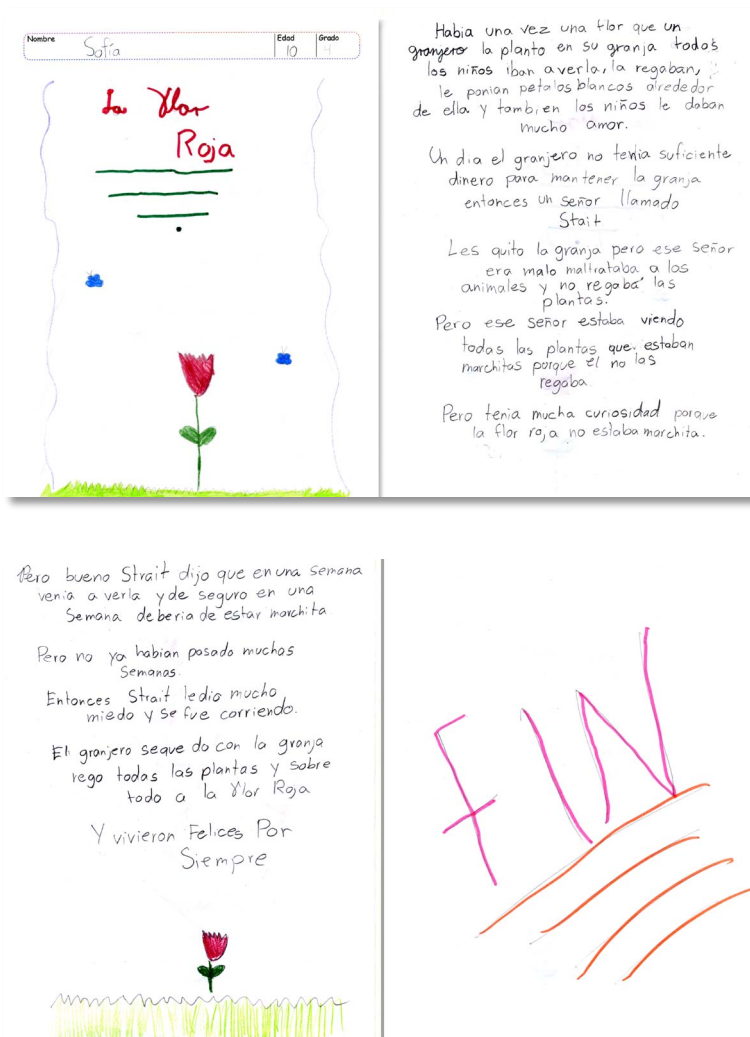 Nombre
Sofía
Edad
10
Grado
4
La Flor
Roja
Habia una vez una flor que un
granjero la planto en su granja todos
los niños iban a verla, la regaban,
le ponian petalos blancos alrededor
de ella y tambien los niños le daban
mucho amor.
Un dia el granjero no tenia suficiente
dinero para mantener la granja
entonces un señor llamado
Strait
Les quito la granja pero ese señor
era malo maltrataba a los
animales y no regaba las
plantas.
Pero ese señor estaba viendo
todas las plantas que estaban
marchitas porque el no las
regaba
Pero tenia mucha curiosidad porque
la flor roja no estaba marchita.
Pero bueno Strait dijo que en una semana
venia a verla y de seguro en una
Semana deberia de estar marchita
Pero no ya habian pasado muchas
Semanas.
Entonces Strait le dio mucho
miedo y se fue corriendo.
El granjero se quedo con la granja
rego todas las plantas y sobre
todo a la Flor Roja
Y vivieron Felices Por
Siempre
FIN